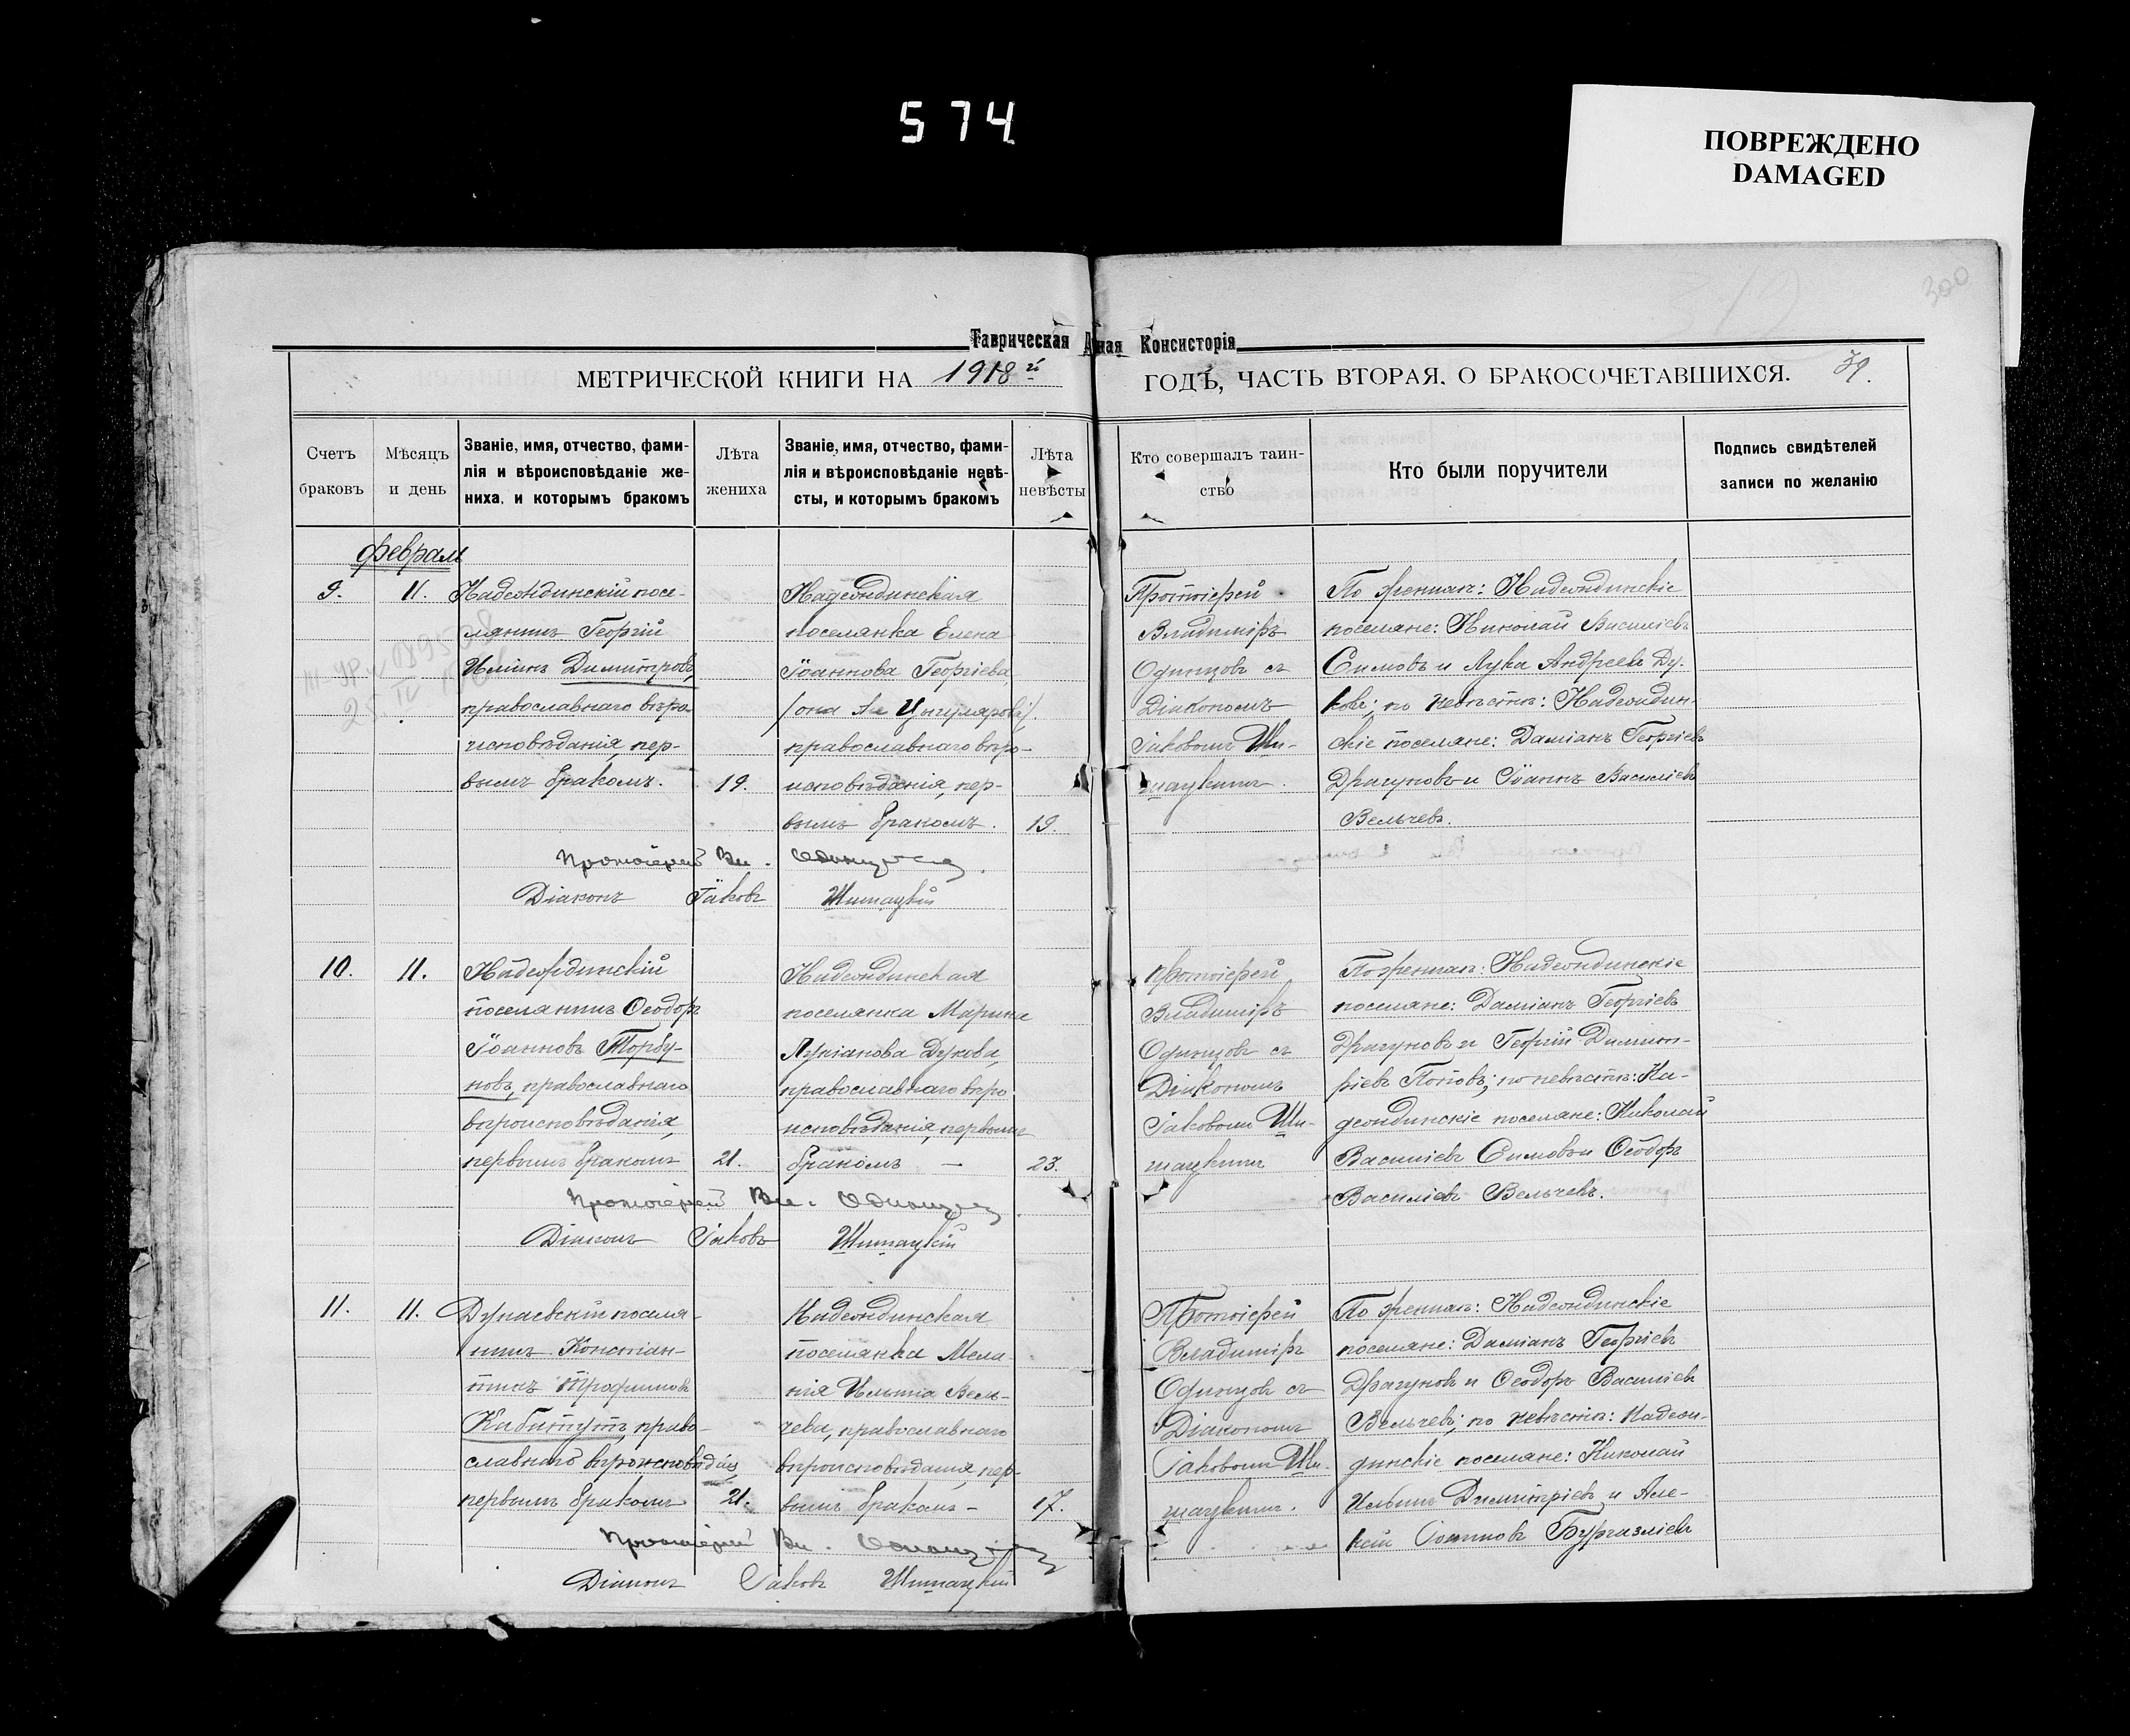 574
ПОВРЕЖДЕНО
DAMAGED
300
Таврическая ная Консисторія
МЕТРИЧЕСКОЙ КНИГИ НА 1918й ГОДЪ, ЧАСТЬ ВТОРАЯ, О БРАКОСОЧЕТАВШИХСЯ.
Счетъ браковъ
Мѣсяцъ и день
Званіе, имя, отчество, фами-
лія и вѣроисповѣданіе же-
ниха, и которымъ бракомъ
Лѣта жениха
Званіе, имя, отчество, фами-
лія и вѣроисповѣданіе невѣ-
сты, и которымъ бракомъ
Лѣта невѣсты
Кто совершалъ таин-
ство
Кто были поручители
Подпись свидѣтелей
записи по желанію
Февраль
9.
11.
поселянинъ Георгій
Димитровъ,
православнаго вѣро-
исповѣданія, пер-
вымъ бракомъ.
19.
поселянка Елена
Іоаннова Георгіева,
православнаго вѣро-
исповѣданія, пер-
вымъ бракомъ.
19.
Протоіерей
Владиміръ
Одинцовъ съ
Діакономъ
Іаковомъ Ши-
мацкимъ.
По женихѣ:
поселяне: Николай Василіевъ
Симовъ и Лука Андреевъ Ду-
ковъ; по невѣстѣ:
скіе поселяне: Даміанъ Георгіевъ
Драгуновъ и Іоаннъ Василіевъ
Вельчевъ.
Протоіерей Вл. Одинцовъ
Діаконъ Іаковъ Шимацкій
10.
11.
поселянинъ Ѳеодоръ
Іоанновъ Торбу-
новъ, православнаго
вѣроисповѣданія,
первымъ бракомъ
21.
поселянка Марина
Лукіанова Дукова,
православнаго вѣро
исповѣданія, первымъ
бракомъ —
23.
Протоіерей
Владиміръ
Одинцовъ съ
Діакономъ
Іаковомъ Ши-
мацкимъ
По женихѣ:
поселяне: Даміанъ Георгіевъ
Драгуновъ и Георгій Димит-
ріевъ Поповъ; по невѣстѣ: На-
поселяне: Николай
Василіевъ Симовъ и Ѳеодоръ
Василіевъ Вельчевъ.
Протоіерей Вл. Одинцовъ
Діаконъ Іаковъ Шимацкій
11.
11.
Дунаевскій поселя-
нинъ Констан-
тинъ Трофимовъ
право-
славнаго вѣроисповѣданія,
первымъ бракомъ
21.
поселянка Мела-
нія Вель-
чева, православнаго
вѣроисповѣданія, пер-
вымъ бракомъ —
17.
Протоіерей
Владиміръ
Одинцовъ съ
Діакономъ
Іаковомъ Ши-
мацкимъ.
По женихѣ:
поселяне: Даміанъ Георгіевъ
Драгуновъ и Ѳеодоръ Василіевъ
Вельчевъ; по невѣстѣ:
поселяне: Николай
Ильинъ Димитріевъ и Але-
ксѣй Іоанновъ
Протоіерей Вл. Одинцовъ
Діаконъ Іаковъ Шимацкій